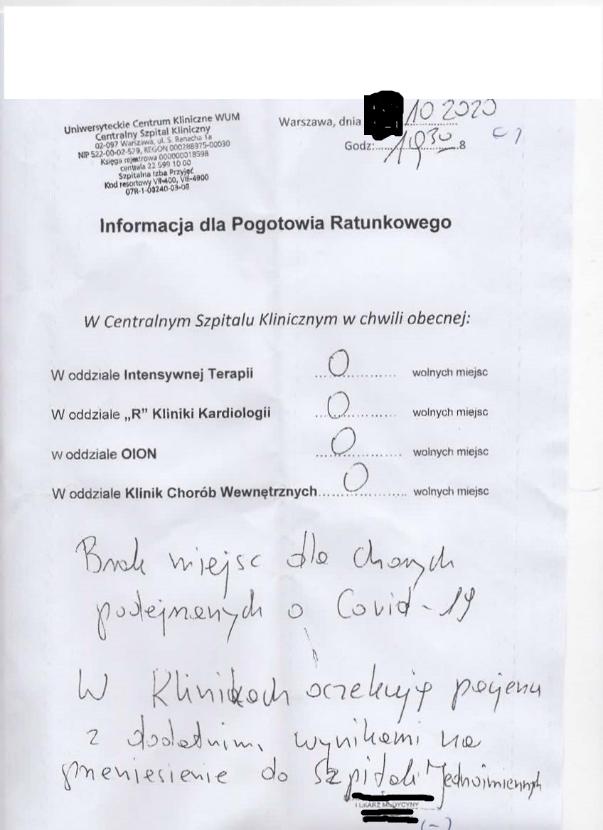 Uniwersyteckie Centrum Kliniczne WUM
Centralny Szpital Kliniczny
02-097 Warszawa, ul. S. Banacha 1a
NIP 522-00-02-529, REGON 000288975-00030
Księga rejestrowa 000000018598
centrala 22 599 10 00
Szpitalna Izba Przyjęć
Kod resortowy VII-400, VIII-4900
07R-1-00240-03-08
Warszawa, dnia 10 2020
Godz: 1930 8
Informacja dla Pogotowia Ratunkowego
W Centralnym Szpitalu Klinicznym w chwili obecnej:
W oddziale Intensywnej Terapii 0 wolnych miejsc
W oddziale „R" Kliniki Kardiologii 0 wolnych miejsc
W oddziale OION 0 wolnych miejsc
W oddziale Klinik Chorób Wewnętrznych 0 wolnych miejsc
Brak miejsc dla chorych
podejrzanych o Covid-19
W Klinikach oczekują pacjenci
z dodatnimi wynikami na
przeniesienie do Szpitali Jednoimiennych
LEKARZ MEDYCYNY
(-)